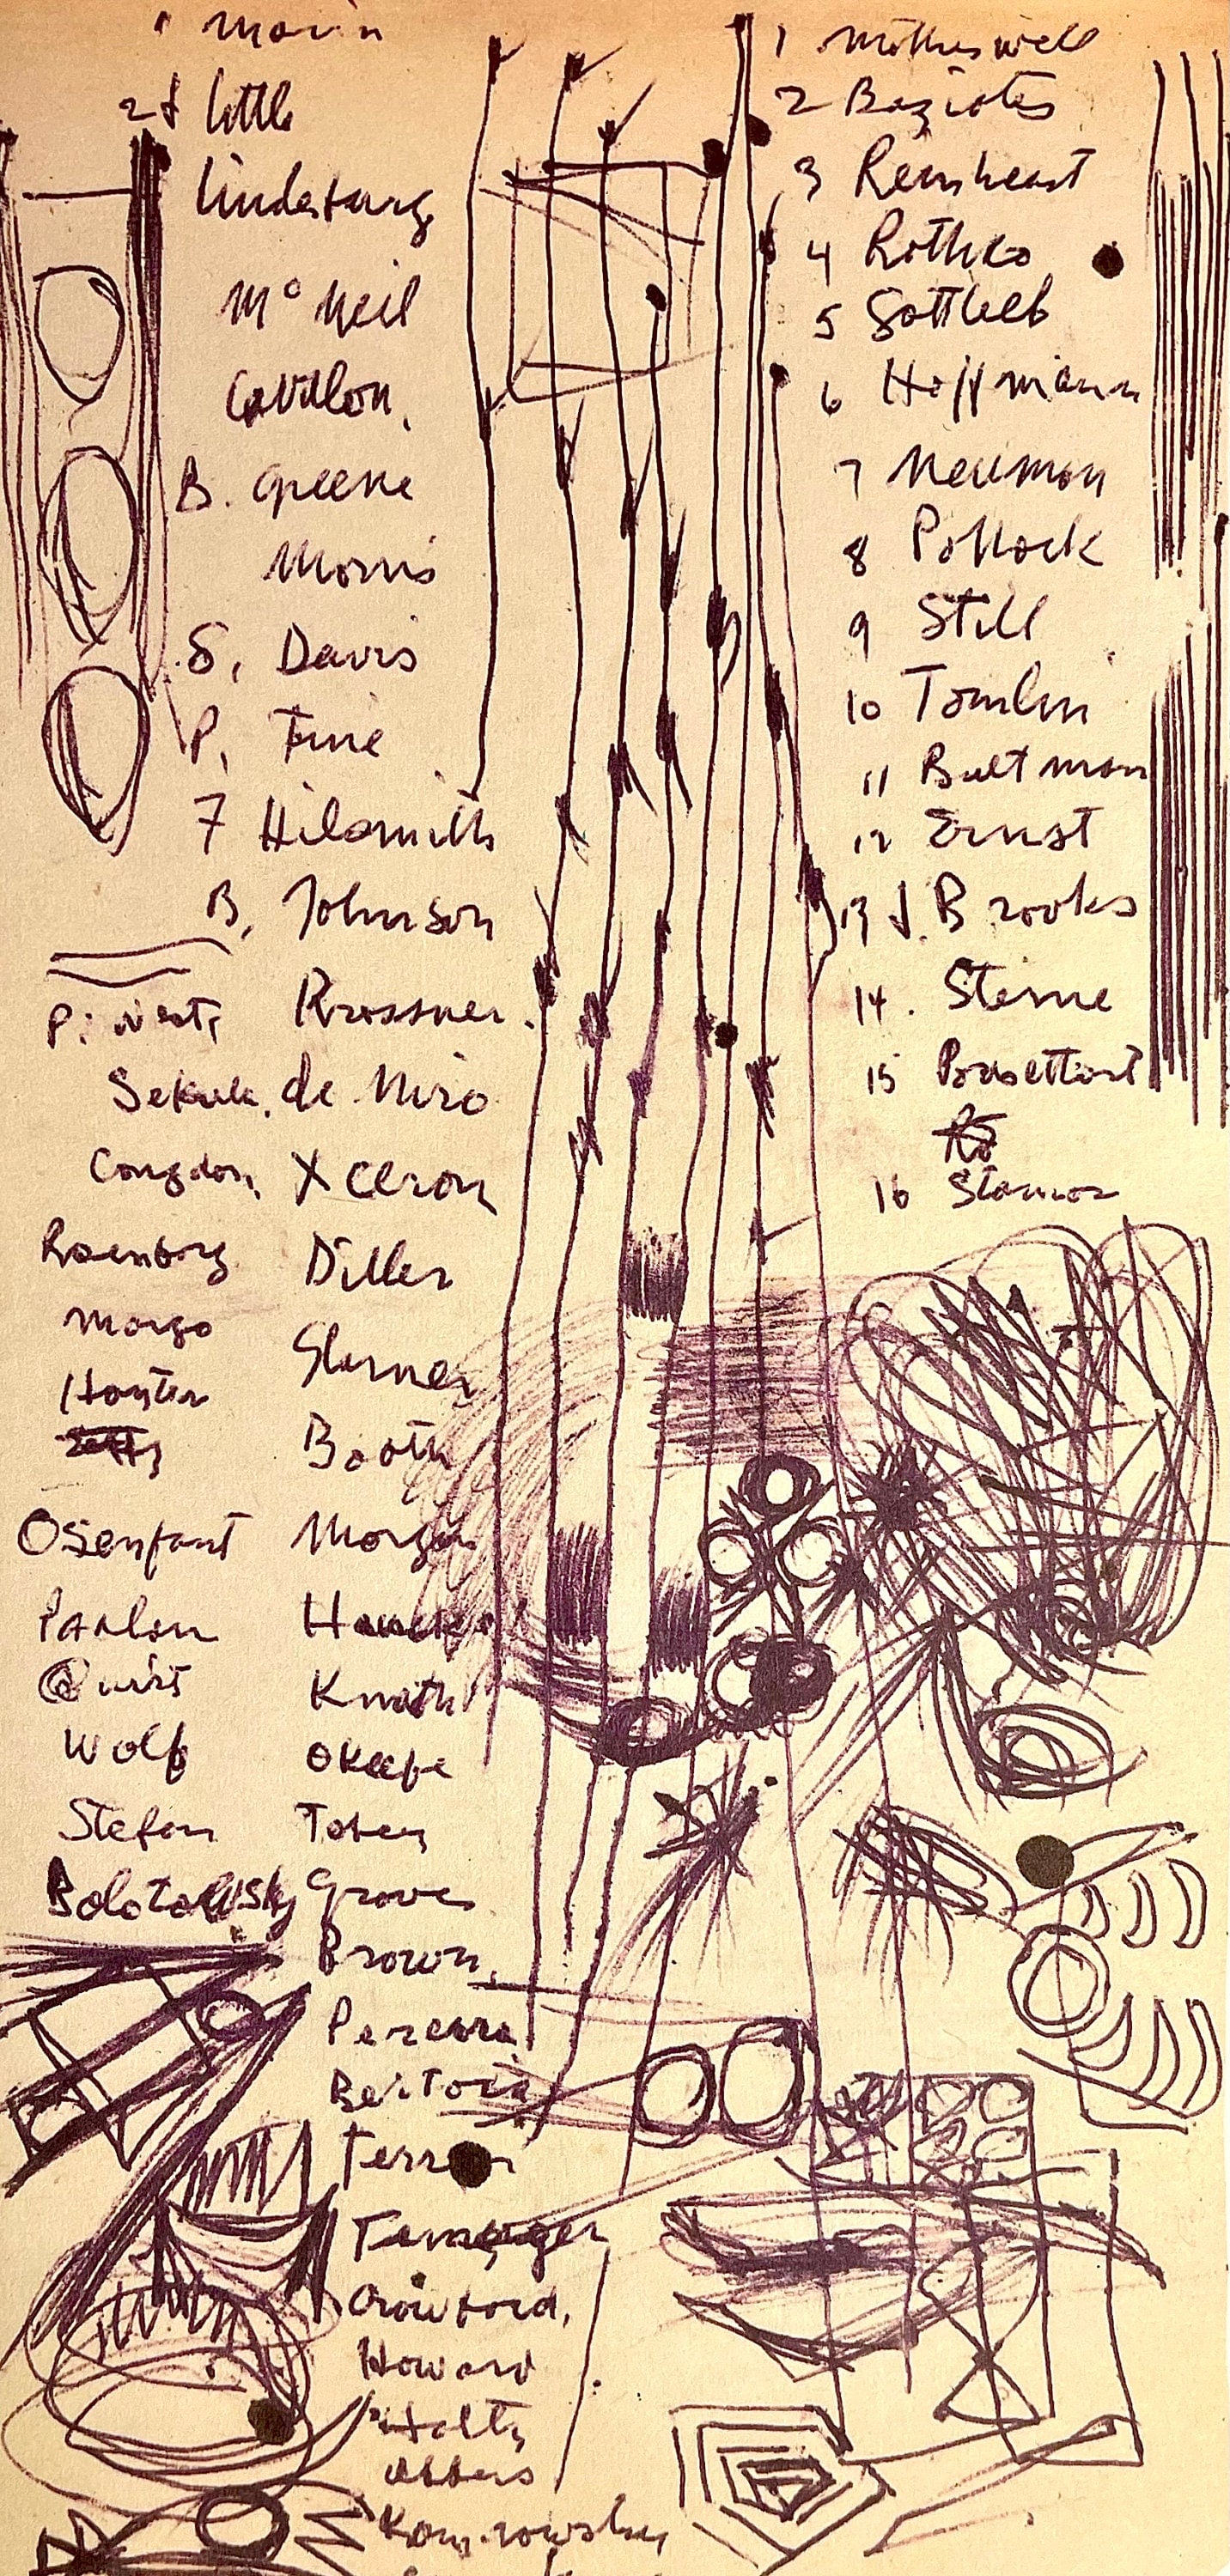 1 Marin
2 J little
Lindeburg
Mc Neil
Cavallon,
B. Greene
Morris
S. Davis
P. Fine
7 Hilsmith
B. Johnson
Krassner.
Sekula. de Niro
Congdon, Xceron
Rosenborg Diller
Margo Sterner
Booth
Osenfant Morgan
Quirt Knath
Wolf Okeefe
Stefan Tobey
Bolotowsky Graves
Brown,
Pereira
Bertoia
Terron
Crawford,
Howard
Holty
Albers
Kamrowsky
1 Motherwell
2 Baziotes
3 Reinheart
4 Rothko
5 Gottleib
6 Hoffmann
7 Neuman
8 Pollock
9 Still
10 Tomlin
11 Bultman
12 Ernst
13 J. Brooks
14. Sterne
15 Pousettdart
16 Stamos